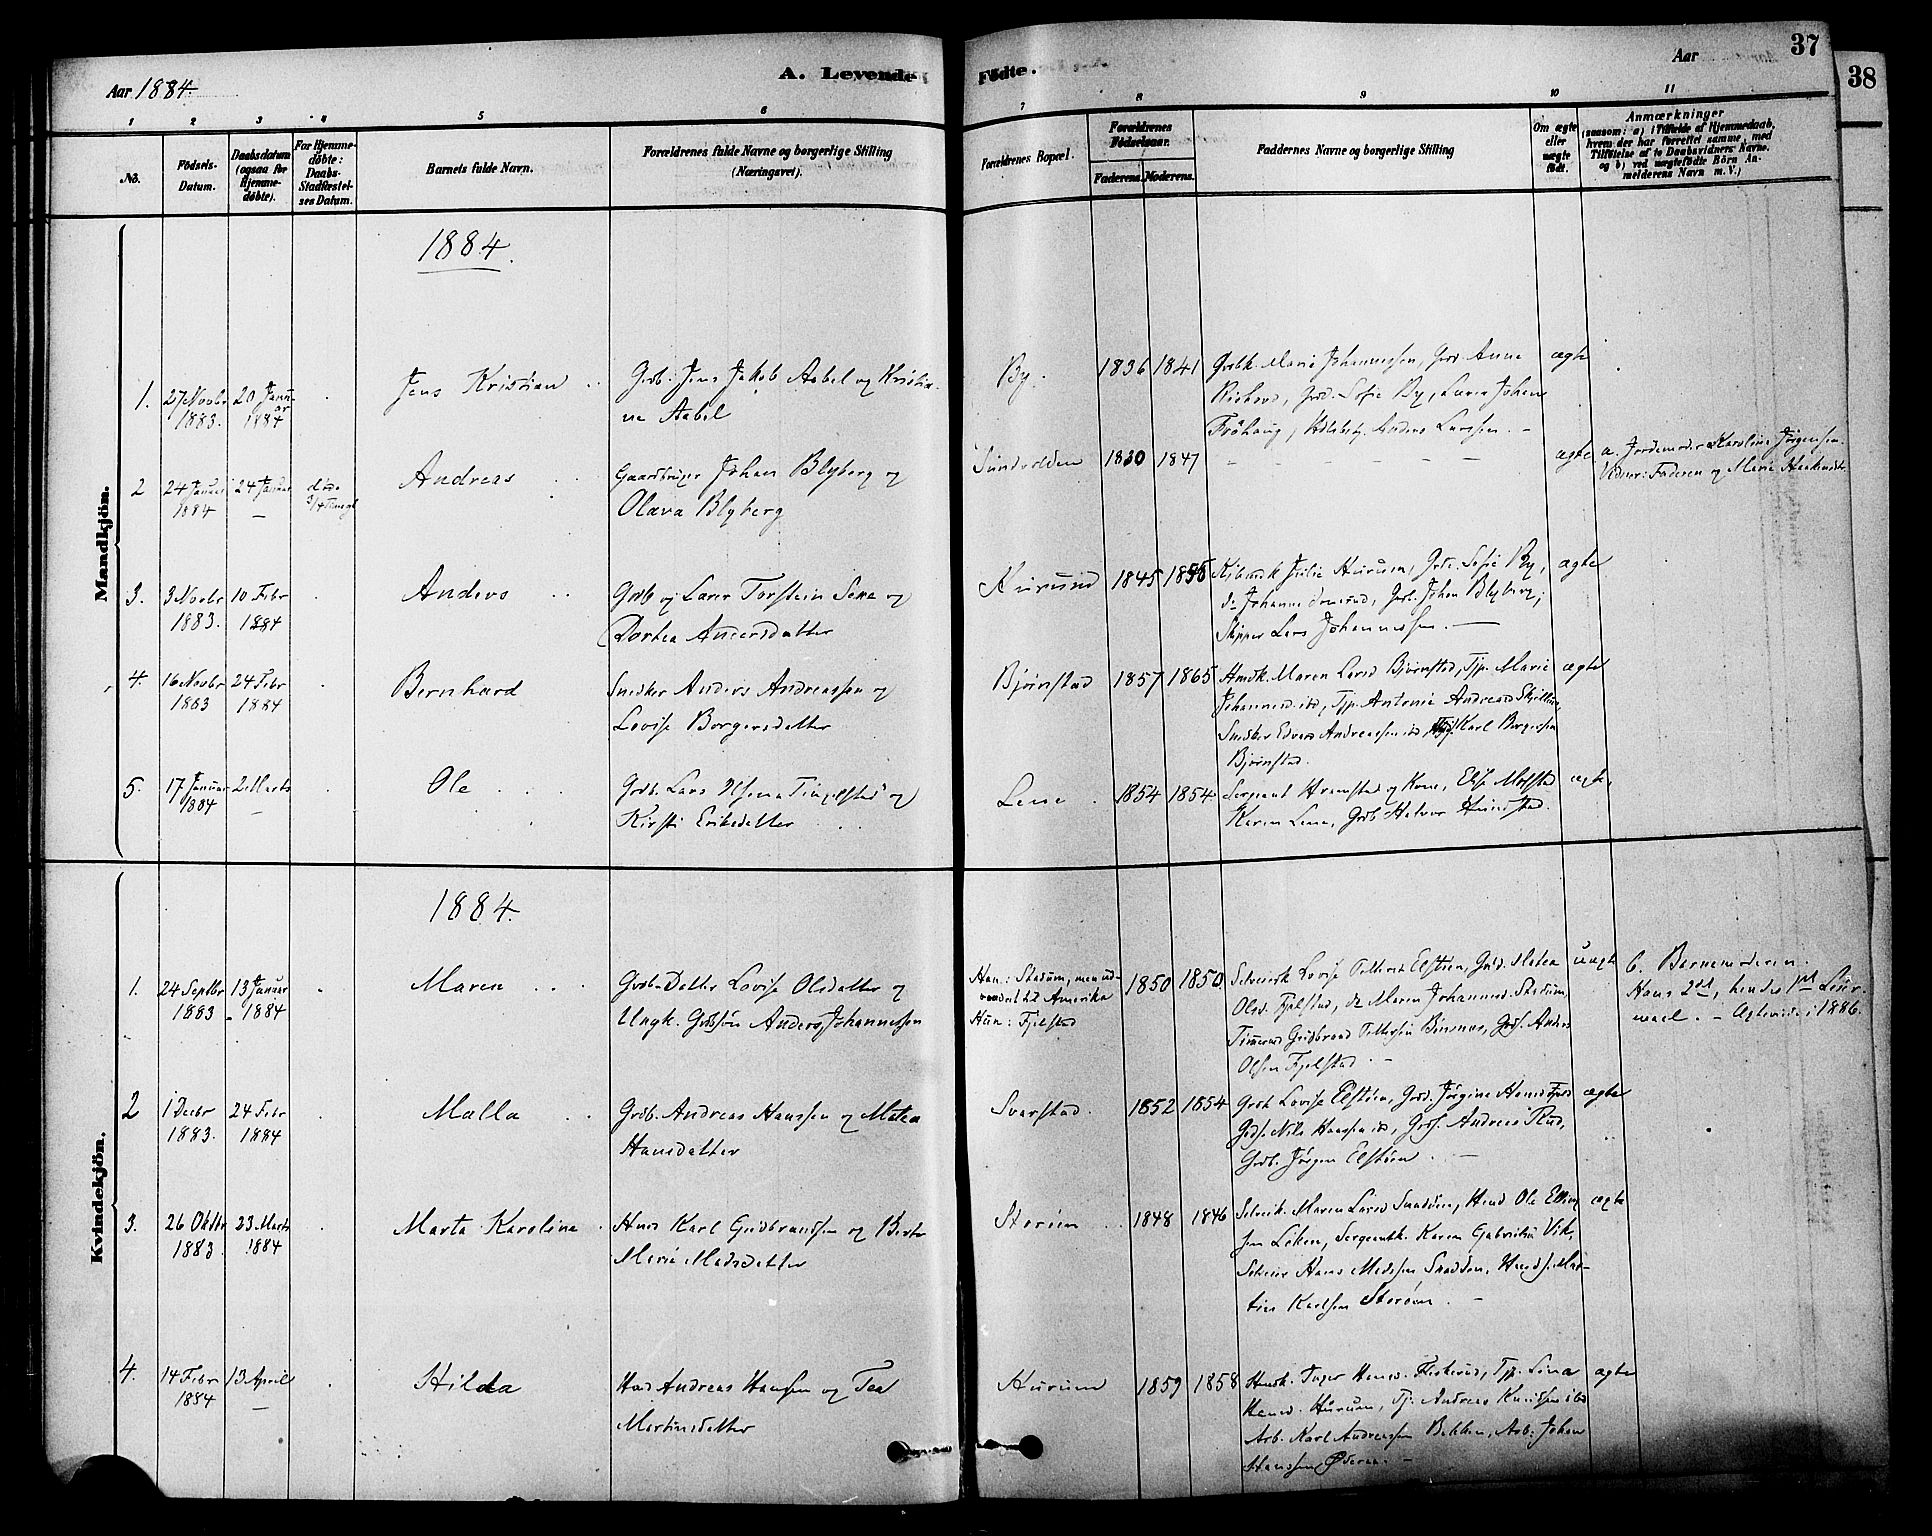 37
38
Aar 1884.
A. Levende
Fødte.
Aar
1 2 3 4 5 6 7 8 9 10 11
No.
Fødsels-Datum.
Daabsdatum (ogsaa for Hjemmedøbte).
For Hjemmedøbte: Daabs-Stadfæstelses Datum.
Barnets fulde Navn.
Forældrenes fulde Navne og borgerlige Stilling (Næringsvei).
Forældrenes Bopæl.
Forældrenes Fødselsaar.
Faderens. Moderens.
Faddernes Navne og borgerlige Stilling
Om ægte eller uægte født.
Anmærkninger
(saasom: a) i Tilfælde af Hjemmedaab, hvem der har forrettet samme, med Tilføielse af to Daabsvidners Navne, og b) ved uægtefødte Börn Anmelderens Navn m. V.)
Mandkjön.
1884.
1. 27 Novbr 1883. 20 Januar 1884
Jens Kristian
Grdb. Jens Jakob Aabel og Kristiane Aabel
By. 1836 1841
Grdbk. Marie Johannessen, Grd. Anna
Grd. Sofie By, Johan
Frøhaug, Anders Larssen. —
ægte
2 24 Januar 1884 24 Januar —
Andreas
Gaardbruger Johan Blyberg og
Olava Blyberg
Sundvolden 1830 1847
ægte
a. Jordemoder Karoline Jørgensen.
Vidner: Faderen og Marie
3. 3 Novbr 1883. 10 Febr 1884
Anders
Grdb og Lærer Torstein Sena og
Dortea Andersdatter
1845
Julie Hurum, Grd. Sofie By,
Grdb. Johan Blyberg,
Skipper Lars Johannessen. —
ægte
4. 16 Novbr 1883 24 Febr 1884
Bernhard
Snedker Anders Andreassen og
Lovise Borgersdatter
Bjørnstad 1857 1865
Hmdk. Maren Larsd Bjørnstad, Tjp. Marie
Johannesd. ibd, Tjp. Antonie Andreasd
Snedker Edvard Andreassen ibd, Karl Borgersen
Bjørnstad.
ægte
5. 17 Januar 1884 2 Marts —
Ole
Grdb. Lars Olsen Tingelstad og
Kirsti Eriksdatter
Lene. 1854 1854
Sergeant Hramstad og Kone, Elise Molstad
Karen Lene, Grdb Halvor
ægte
Kvindekjön.
1884.
1. 24 Septbr 1883 13 Januar 1884
Maren
Grdbr. Datter Lovise Olsdatter og
Ungk. Grdbsøn Anders Johannessen
Han: Stadum, men udvandret til Amerika
Hun: Fjelstad
1850 1850
Selveierk Lovise Pettersd Elstøen, Grd. Matea
Olsd. Fjelstad, do Maren Johannesd. Stadum,
Tømmermd Gudbrand Pettersen, Grds. Anders
Olsen Fjelstad. —
uægte
b. Barnemoderen.
Hans 2det, hendes 1ste Leiermaal. — Ægteviede i 1886.
2 1 Decbr 1883. 24 Febr 1884
Malla
Grdb. Andreas Hanssen og Matea
Hansdatter
Svarstad. 1852 1854
Grdbk Lovise Elstøen, Grd. Jørgine Hansd
Grds. Nils Hanssen ibd, Grds. Andreas Rud,
Grdb. Jørgen Elstøen. —
ægte
3. 26 Oktbr 1883. 23 Marts 1884
Marta Karolina
Hmd Karl Gudbrandsen og Berte
Marie Madsdatter
Storøen 1848 1846
Selveik. Maren Larsd Sandøen, Hmd Ole
Sergeantk. Karen Gabrielsen Vik,
Selveier Hans Madsen Sandøen, Hmds. Martin Karlsen Storøen. —
ægte
4. 14 Febr 1884 13 April —
Hilda
Hmd Andreas Hansen og Tea
Martinsdatter
Hurum 1859 1858
Hmdk. Inger Hansd. Fiskerud, Tjp. Lina
Hansd. Hurum, Tj. Andreas Knudsen ibd
Arb. Karl Andreassen Bakken, Arb. Johan
Hanssen —
ægte